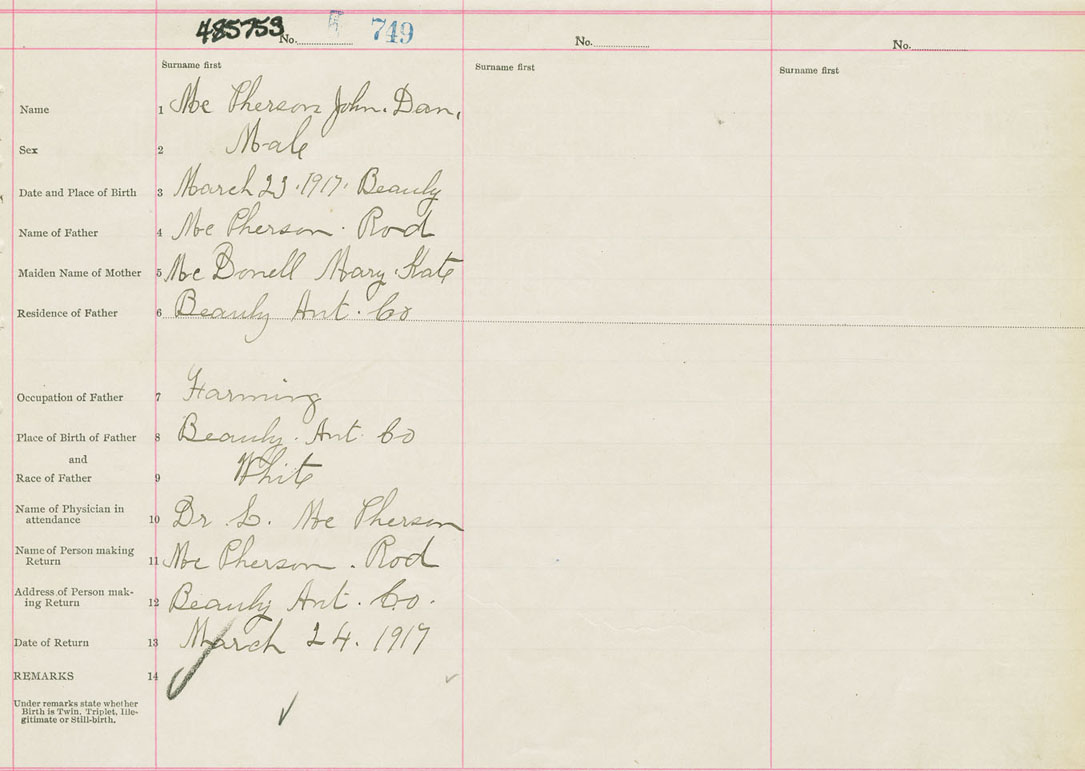 485759 No. 749 No. No.
Surname first Surname first Surname first
Name 1 Mc Pherson John. Dan.
Sex 2 Male
Date and Place of Birth 3 March 23. 1917. Beauly
Name of Father 4 Mc Pherson. Rod
Maiden Name of Mother 5 Mc Donell Mary Kate
Residence of Father 6 Beauly Ant. Co
Occupation of Father 7 Farming
Place of Birth of Father 8 Beauly. Ant. Co
and
Race of Father 9 White
Name of Physician in
attendance 10 Dr. Mc Pherson
Name of Person making
Return 11 Mc Pherson. Rod
Address of Person mak-
ing Return 12 Beauly Ant. Co.
Date of Return 13 March 24. 1917
REMARKS 14
Under remarks state whether
Birth is Twin, Triplet, Ille-
gitimate or Still-birth.